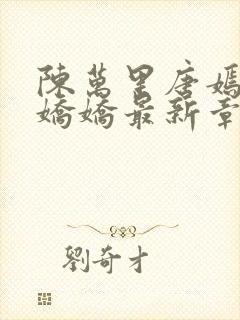 陳萬里唐嫣
嬌嬌最新章
劉奇才